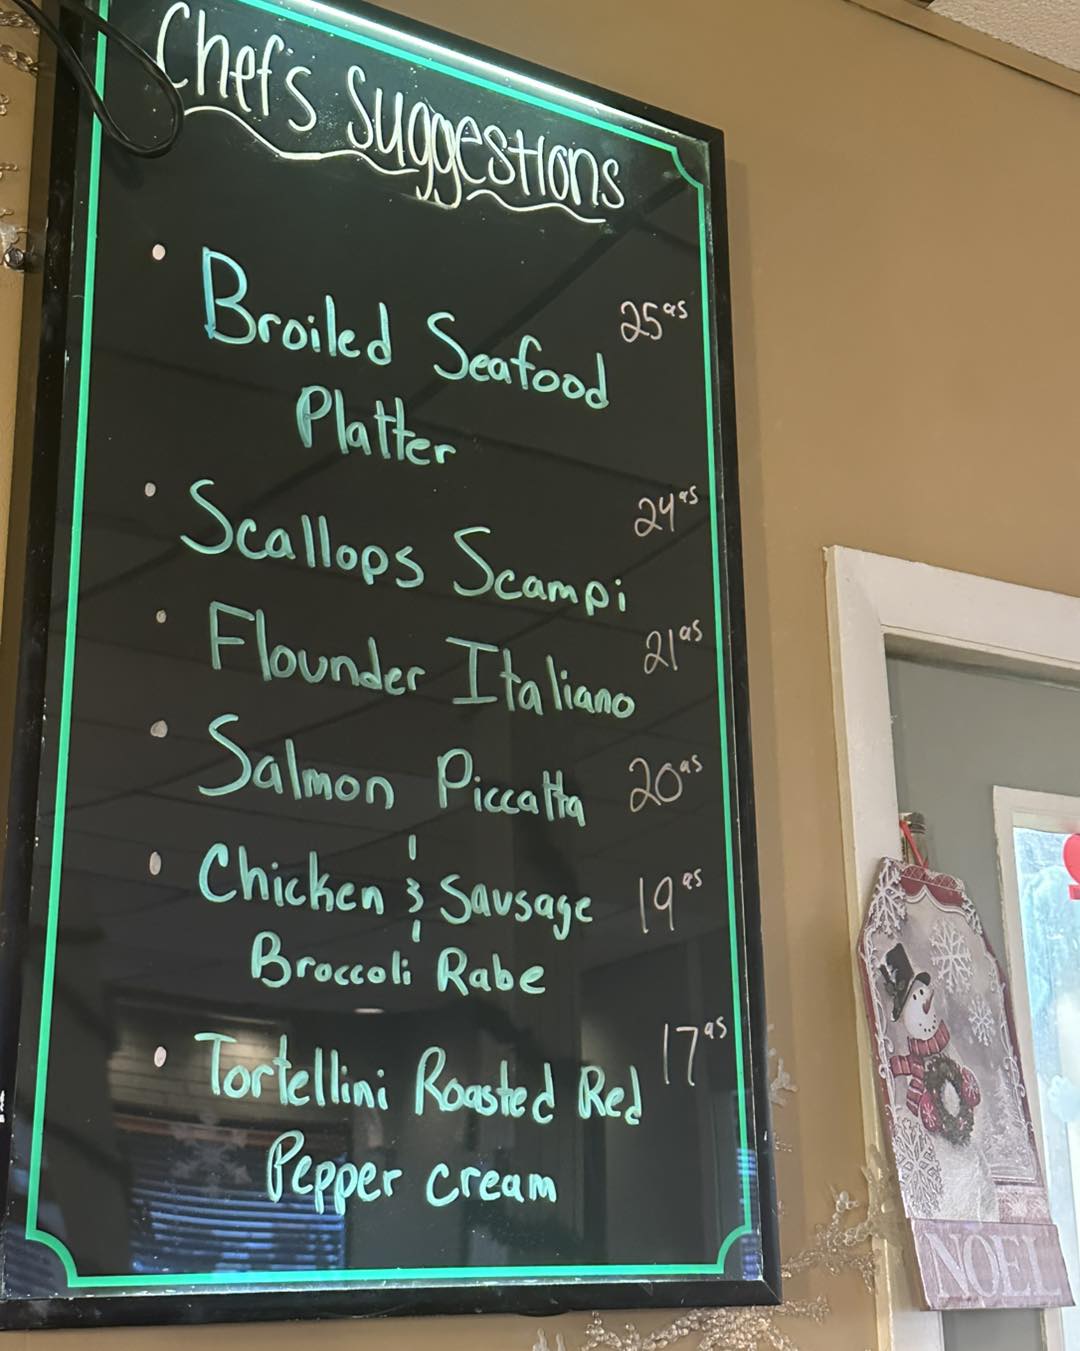 Chef's Suggestions
• Broiled Seafood 25⁹⁵
Platter
• Scallops Scampi 24⁹⁵
• Flounder Italiano 21⁹⁵
• Salmon Piccatta 20⁹⁵
• Chicken & Sausage 19⁹⁵
Broccoli Rabe
• Tortellini Roasted Red 17⁹⁵
Pepper cream
NOEL